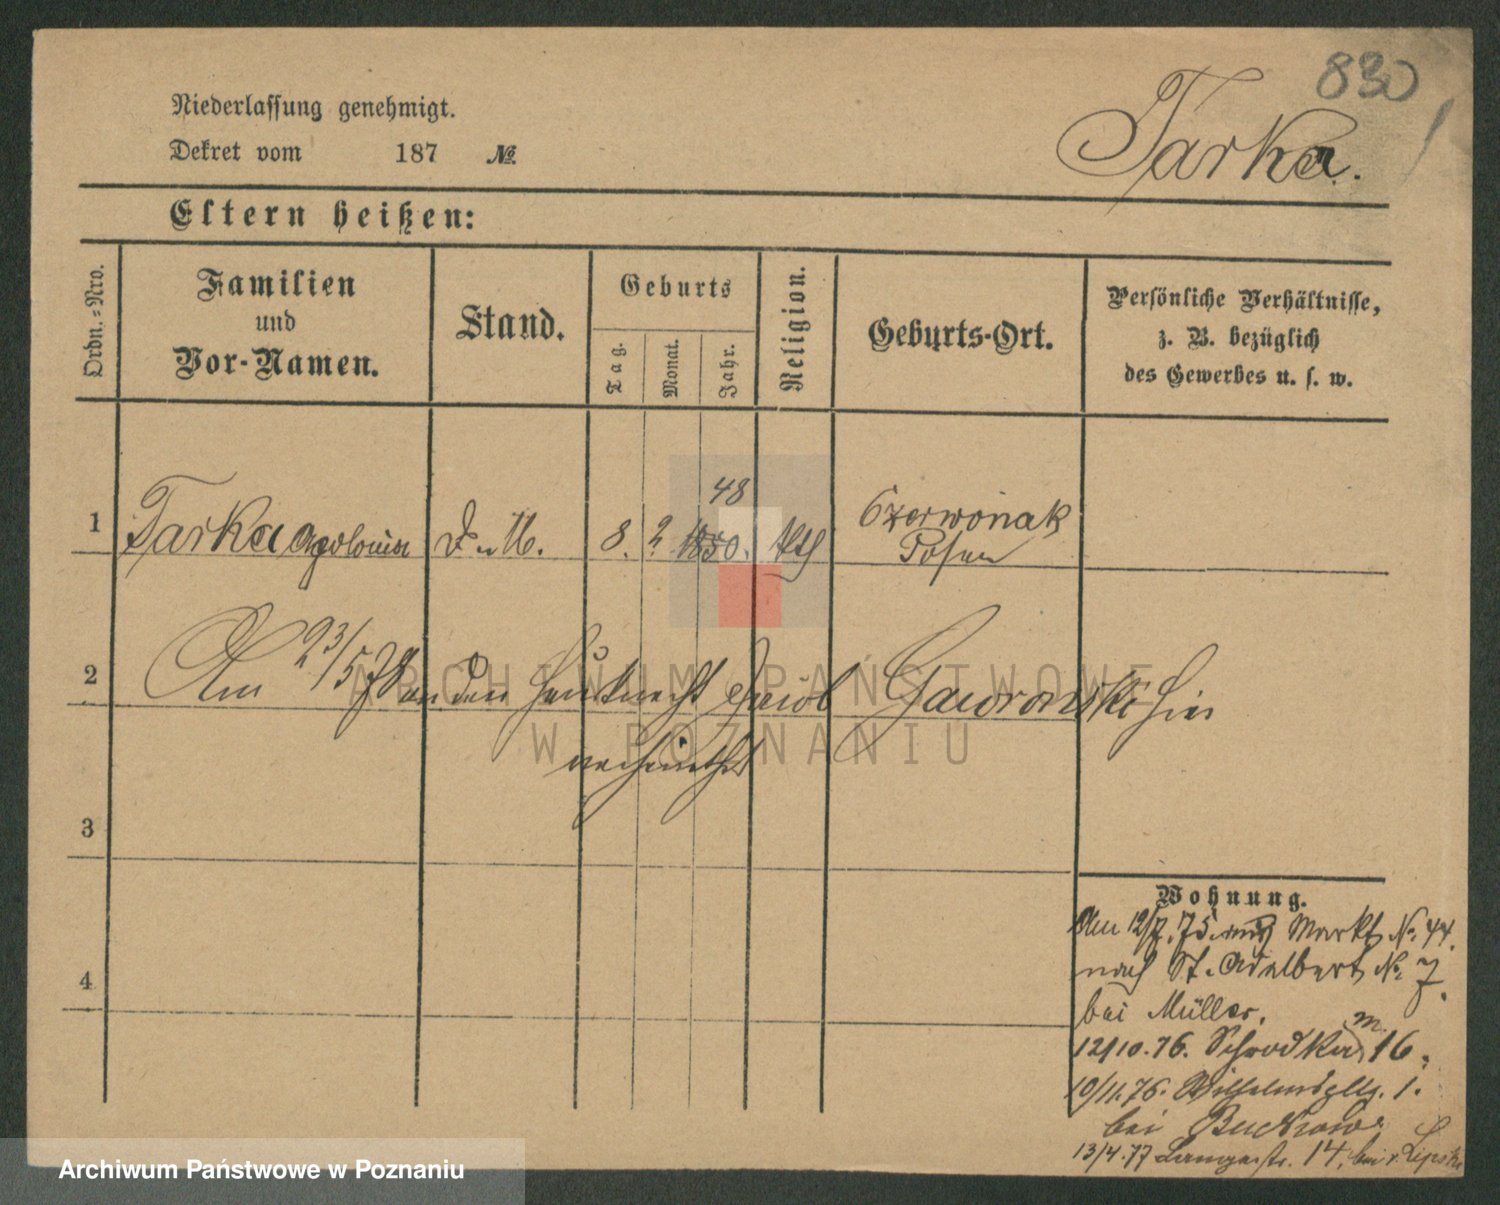 830
Niederlassung genehmigt.
Dekret vom 187 №
Tarka.
Eltern heißen:
Ordn.-Nro.
Familien
und
Vor-Namen.
Stand.
Geburts
Tag.
Monat.
Jahr.
Religion.
Geburts-Ort.
Persönliche Verhältnisse,
z. B. bezüglich
des Gewerbes u. s. w.
48
1 Tarka Apolonia D. M. 8. 2 1850. kth Czerwonak
Posen
2 Am 23/5 78 an den Hausknecht Jacob Gawronski hier
verheirathet
3
4
Wohnung.
Am 12/7. 75. aus Markt No. 44.
nach St. Adalbert No. 7.
bei Müller.
12/10. 76. Schrodka m 16.
10/11. 76. Wilhelmspltz. 1.
bei Buckow
13/4. 77 Langestr. 14, bei v. Lipski
ARCHIWUM PAŃSTWOWE
W POZNANIU
Archiwum Państwowe w Poznaniu